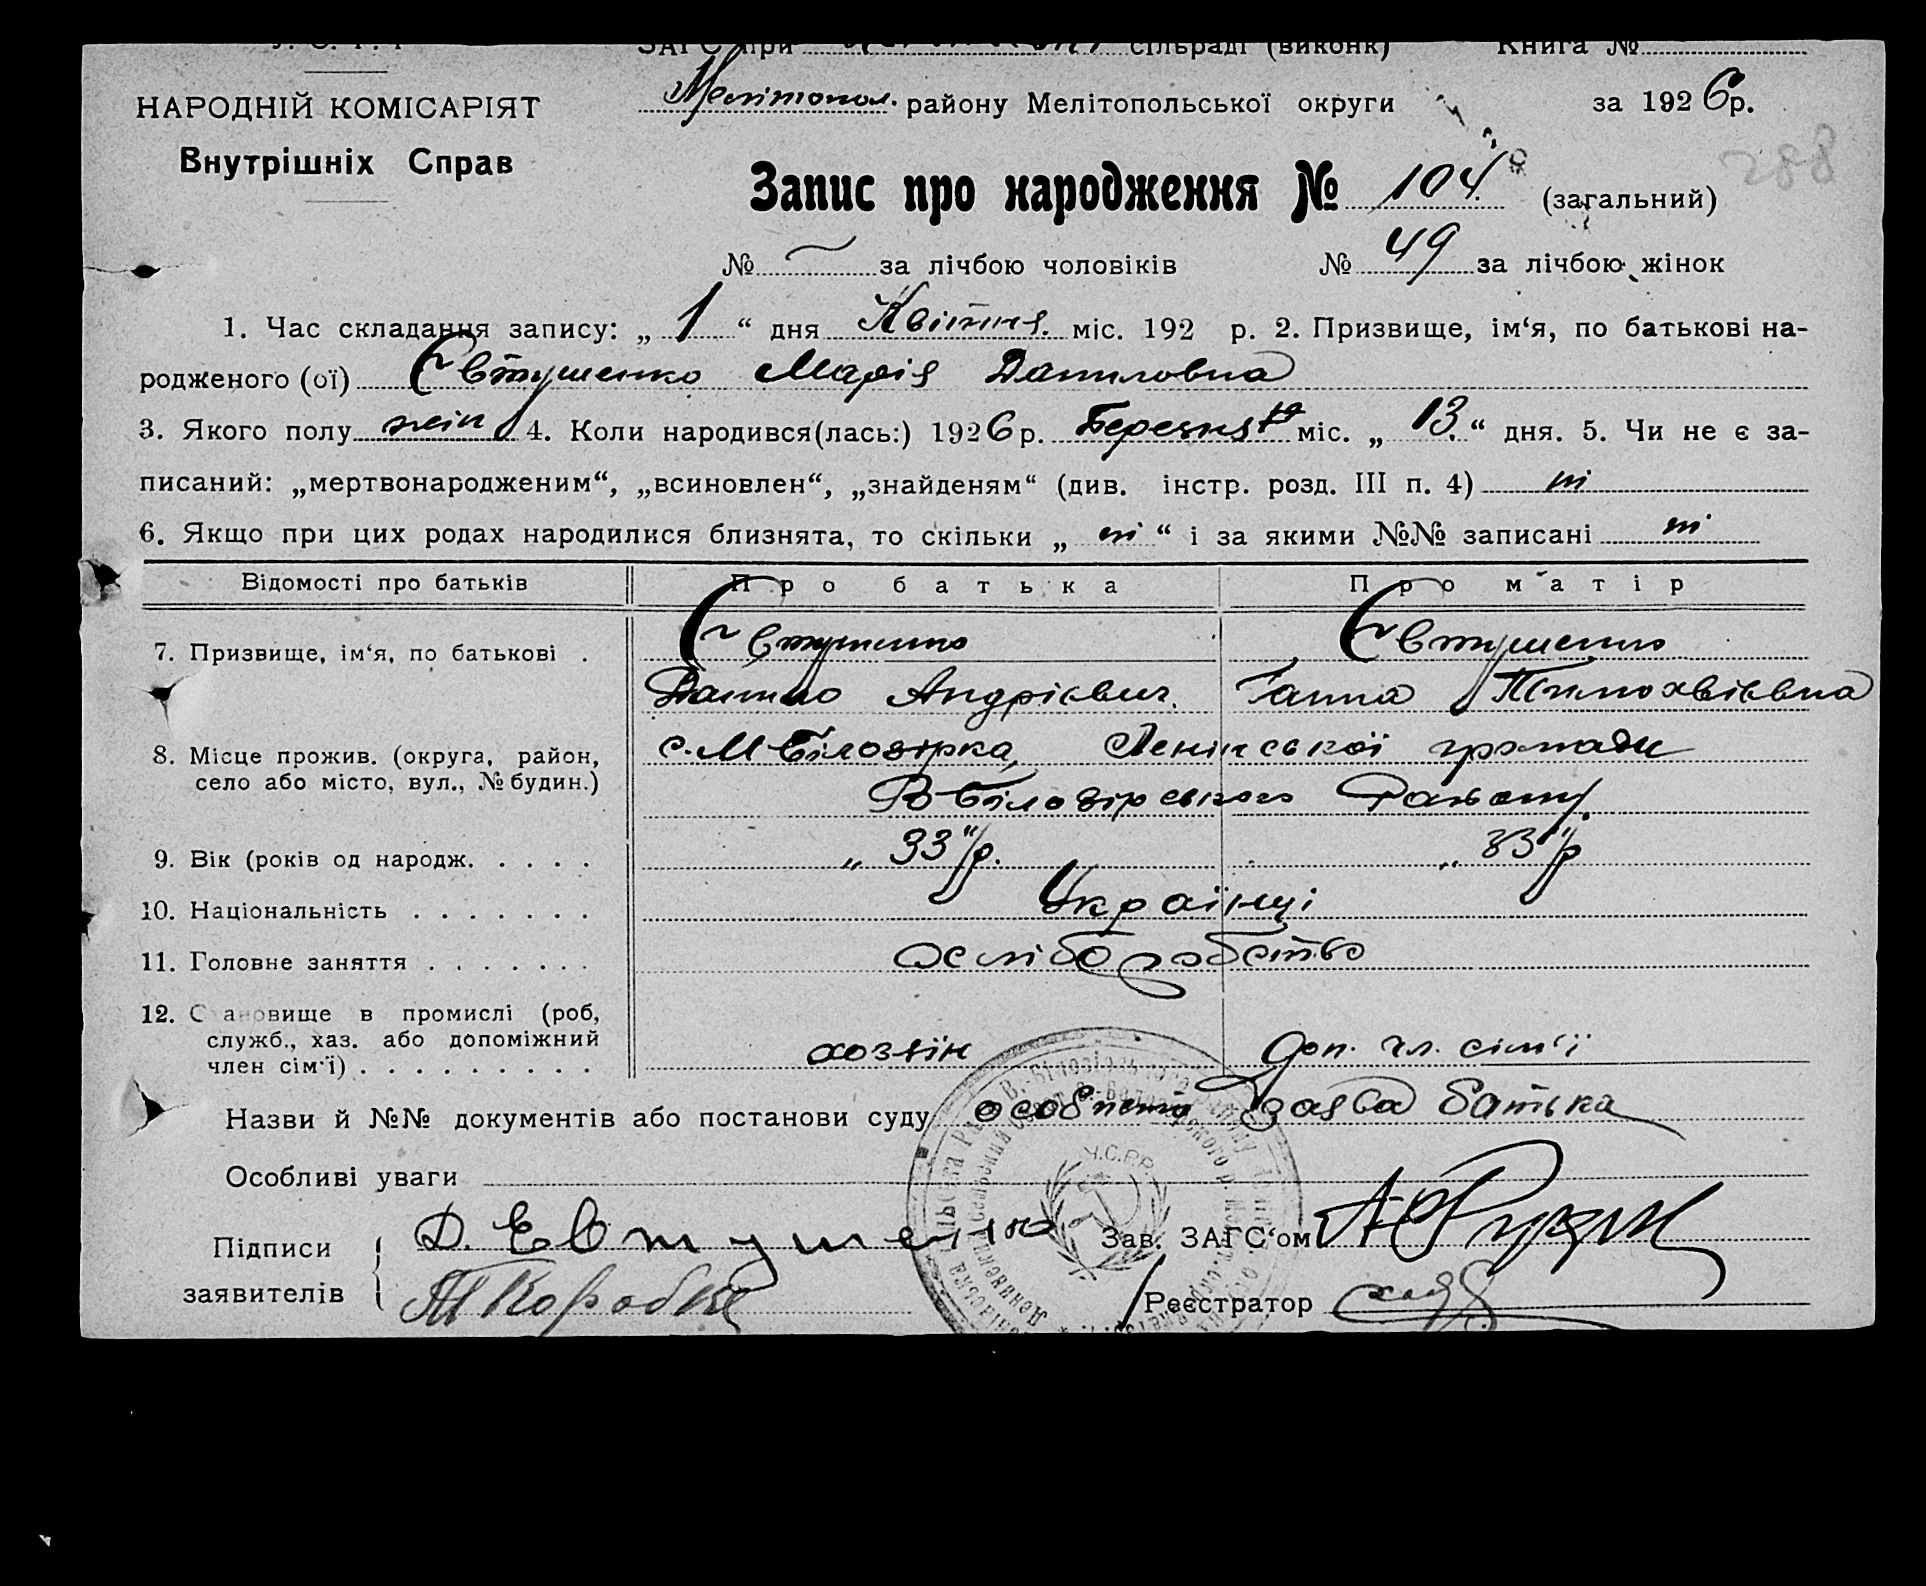 ЗАГС при сільраді (виконк) Книга №
НАРОДНІЙ КОМІСАРІЯТ
Внутрішніх Справ
Мелітопол. району Мелітопольської округи за 1926р.
288
Запис про народження № 104 (загальний)
№ — за лічбою чоловіків № 49 за лічбою жінок
1. Час складання запису: „ 1 “ дня Квітня міс. 192 р. 2. Призвище, ім‘я, по батькові на-
родженого (ої) Євтушенко Марія Даниловна
3. Якого полу жін 4. Коли народився(лась:) 1926р. Березня міс. „ 13. “ дня. 5. Чи не є за-
писаний: „мертвонародженим“, „всиновлен“, „знайденям“ (див. інстр. розд. III п. 4) ні
6. Якщо при цих родах народилися близнята, то скільки „ ні “ і за якими №№ записані ні
Відомості про батьків Про батька Про матір
7. Призвище, ім‘я, по батькові . Євтушенко Євтушенко
Данило Андрієвич. Ганна Тимохвієвна
8. Місце прожив. (округа, район,
село або місто, вул., № будин.)
с. М Білозірка, Ленінської громади
В Білозірського Району.
9. Вік (років од народж. . . . . „ 33 “/р. „ 33 “/р
10. Національність . . . . . . . Українці
11. Головне заняття . . . . . . . хлібор​обство
12. Становище в промислі (роб,
служб., хаз. або допоміжний
член сім‘ї) . . . . . . . . . хозяїн доп. чл. сім‘ї
Назви й №№ документів або постанови суду особиста заява батька
Особливі уваги
У.С.Р.Р.
Підписи
заявителів
Д. Евтушенко
Зав. ЗАГС‘ом
Т Коробка
Реєстратор